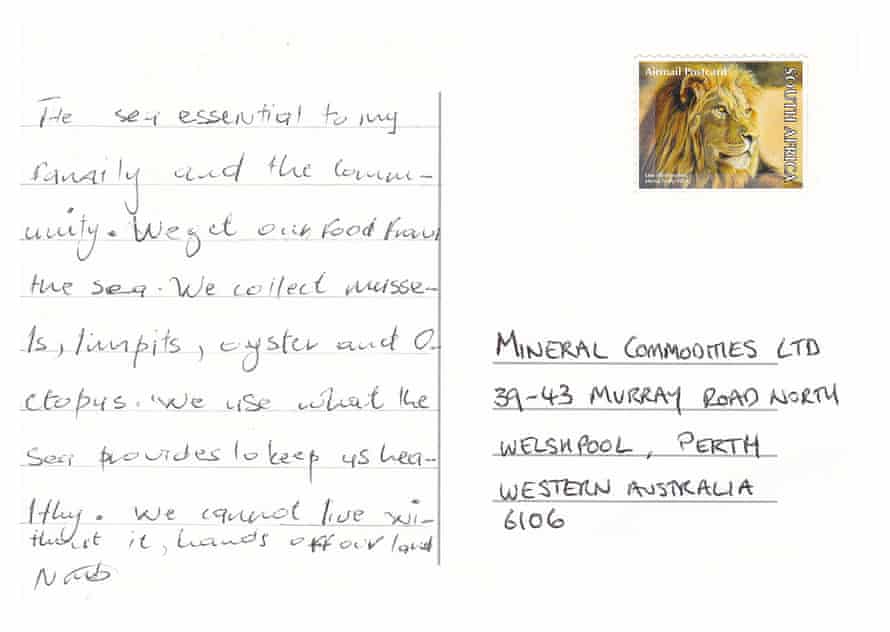 The sea essential to my
family and the comm-
unity. We get our food from
the sea. We collect musse-
ls, limpits, oyster and O-
ctopus. We use what the
sea provides to keep us hea-
lthy. We cannot live wi-
thout it, hands off our land
Airmail Postcard
SOUTH AFRICA
MINERAL COMMODITIES LTD
39-43 MURRAY ROAD NORTH
WELSHPOOL, PERTH
WESTERN AUSTRALIA
6106